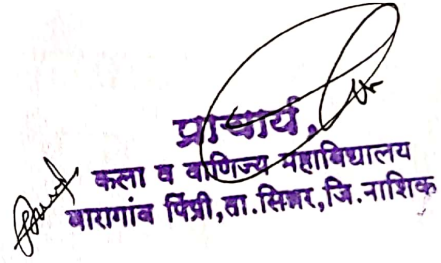 प्राचार्य,
कला व वाणिज्य महाविद्यालय
बारागांव पिंप्री, ता. सिन्नर, जि. नाशिक